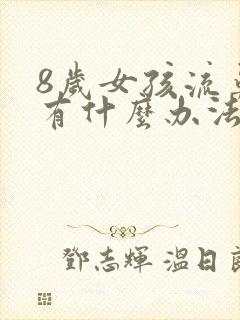 8歲女孩流
有什麼办法
鄧志輝 溫日良